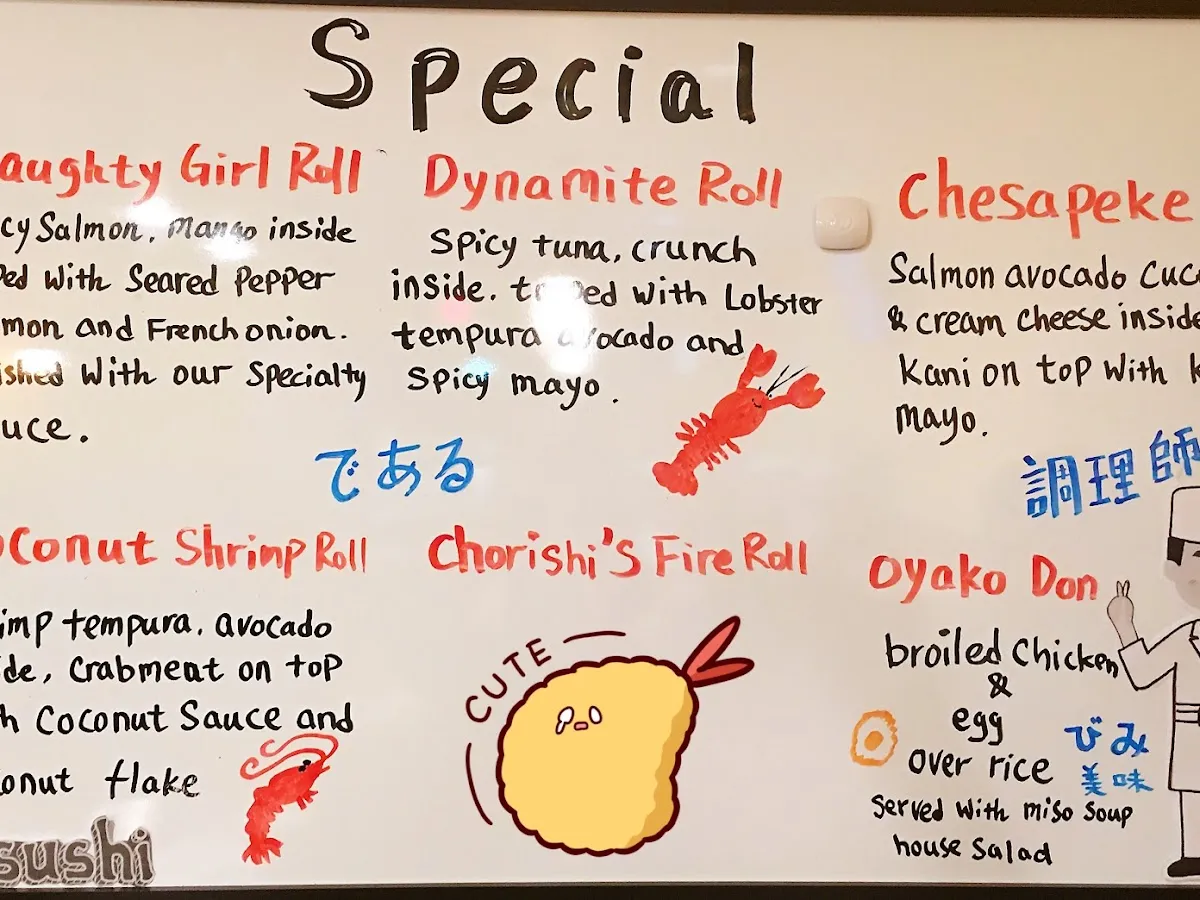 Special
aughty Girl Roll
cy Salmon, mango inside
ped with Seared Pepper
mon and French onion.
ished with our Specialty
uce.
Dynamite Roll
Spicy tuna, crunch
inside. with Lobster
tempura avocado and
Spicy mayo.
Chesapeke
Salmon avocado Cuc
& cream cheese inside
Kani on top with k
mayo.
である
調理師
oconut Shrimp Roll
imp tempura, avocado
ide, Crabment on top
h Coconut Sauce and
onut flake
sushi
Chorishi's Fire Roll
CUTE
Oyako Don
broiled Chicken
&
egg
over rice
served with miso soup
house salad
びみ
美味